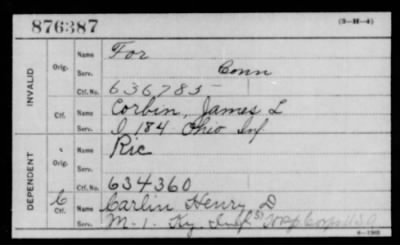 876387 (3—H—4)
INVALID
Orig. Name For
Serv. Conn
Ctf. No. 636783
Ctf. Name Corbin, James L
Serv. I 184 Ohio Inf
DEPENDENT
Orig. Name Ric
Serv.
Ctf. No. 634360
C Ctf. Name Carlin Henry D
Serv. M-1. Ky. Inf Corps USA